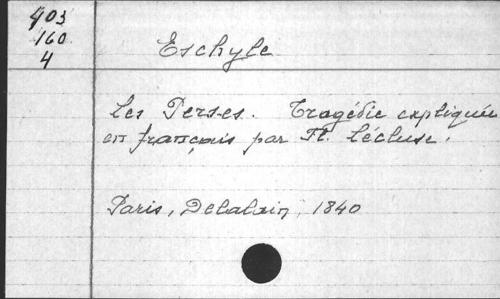 903
160
4
Eschyle
Les Perses. Tragédie expliquée
en français par Fl. Lécluse.
Paris, Delalain, 1840